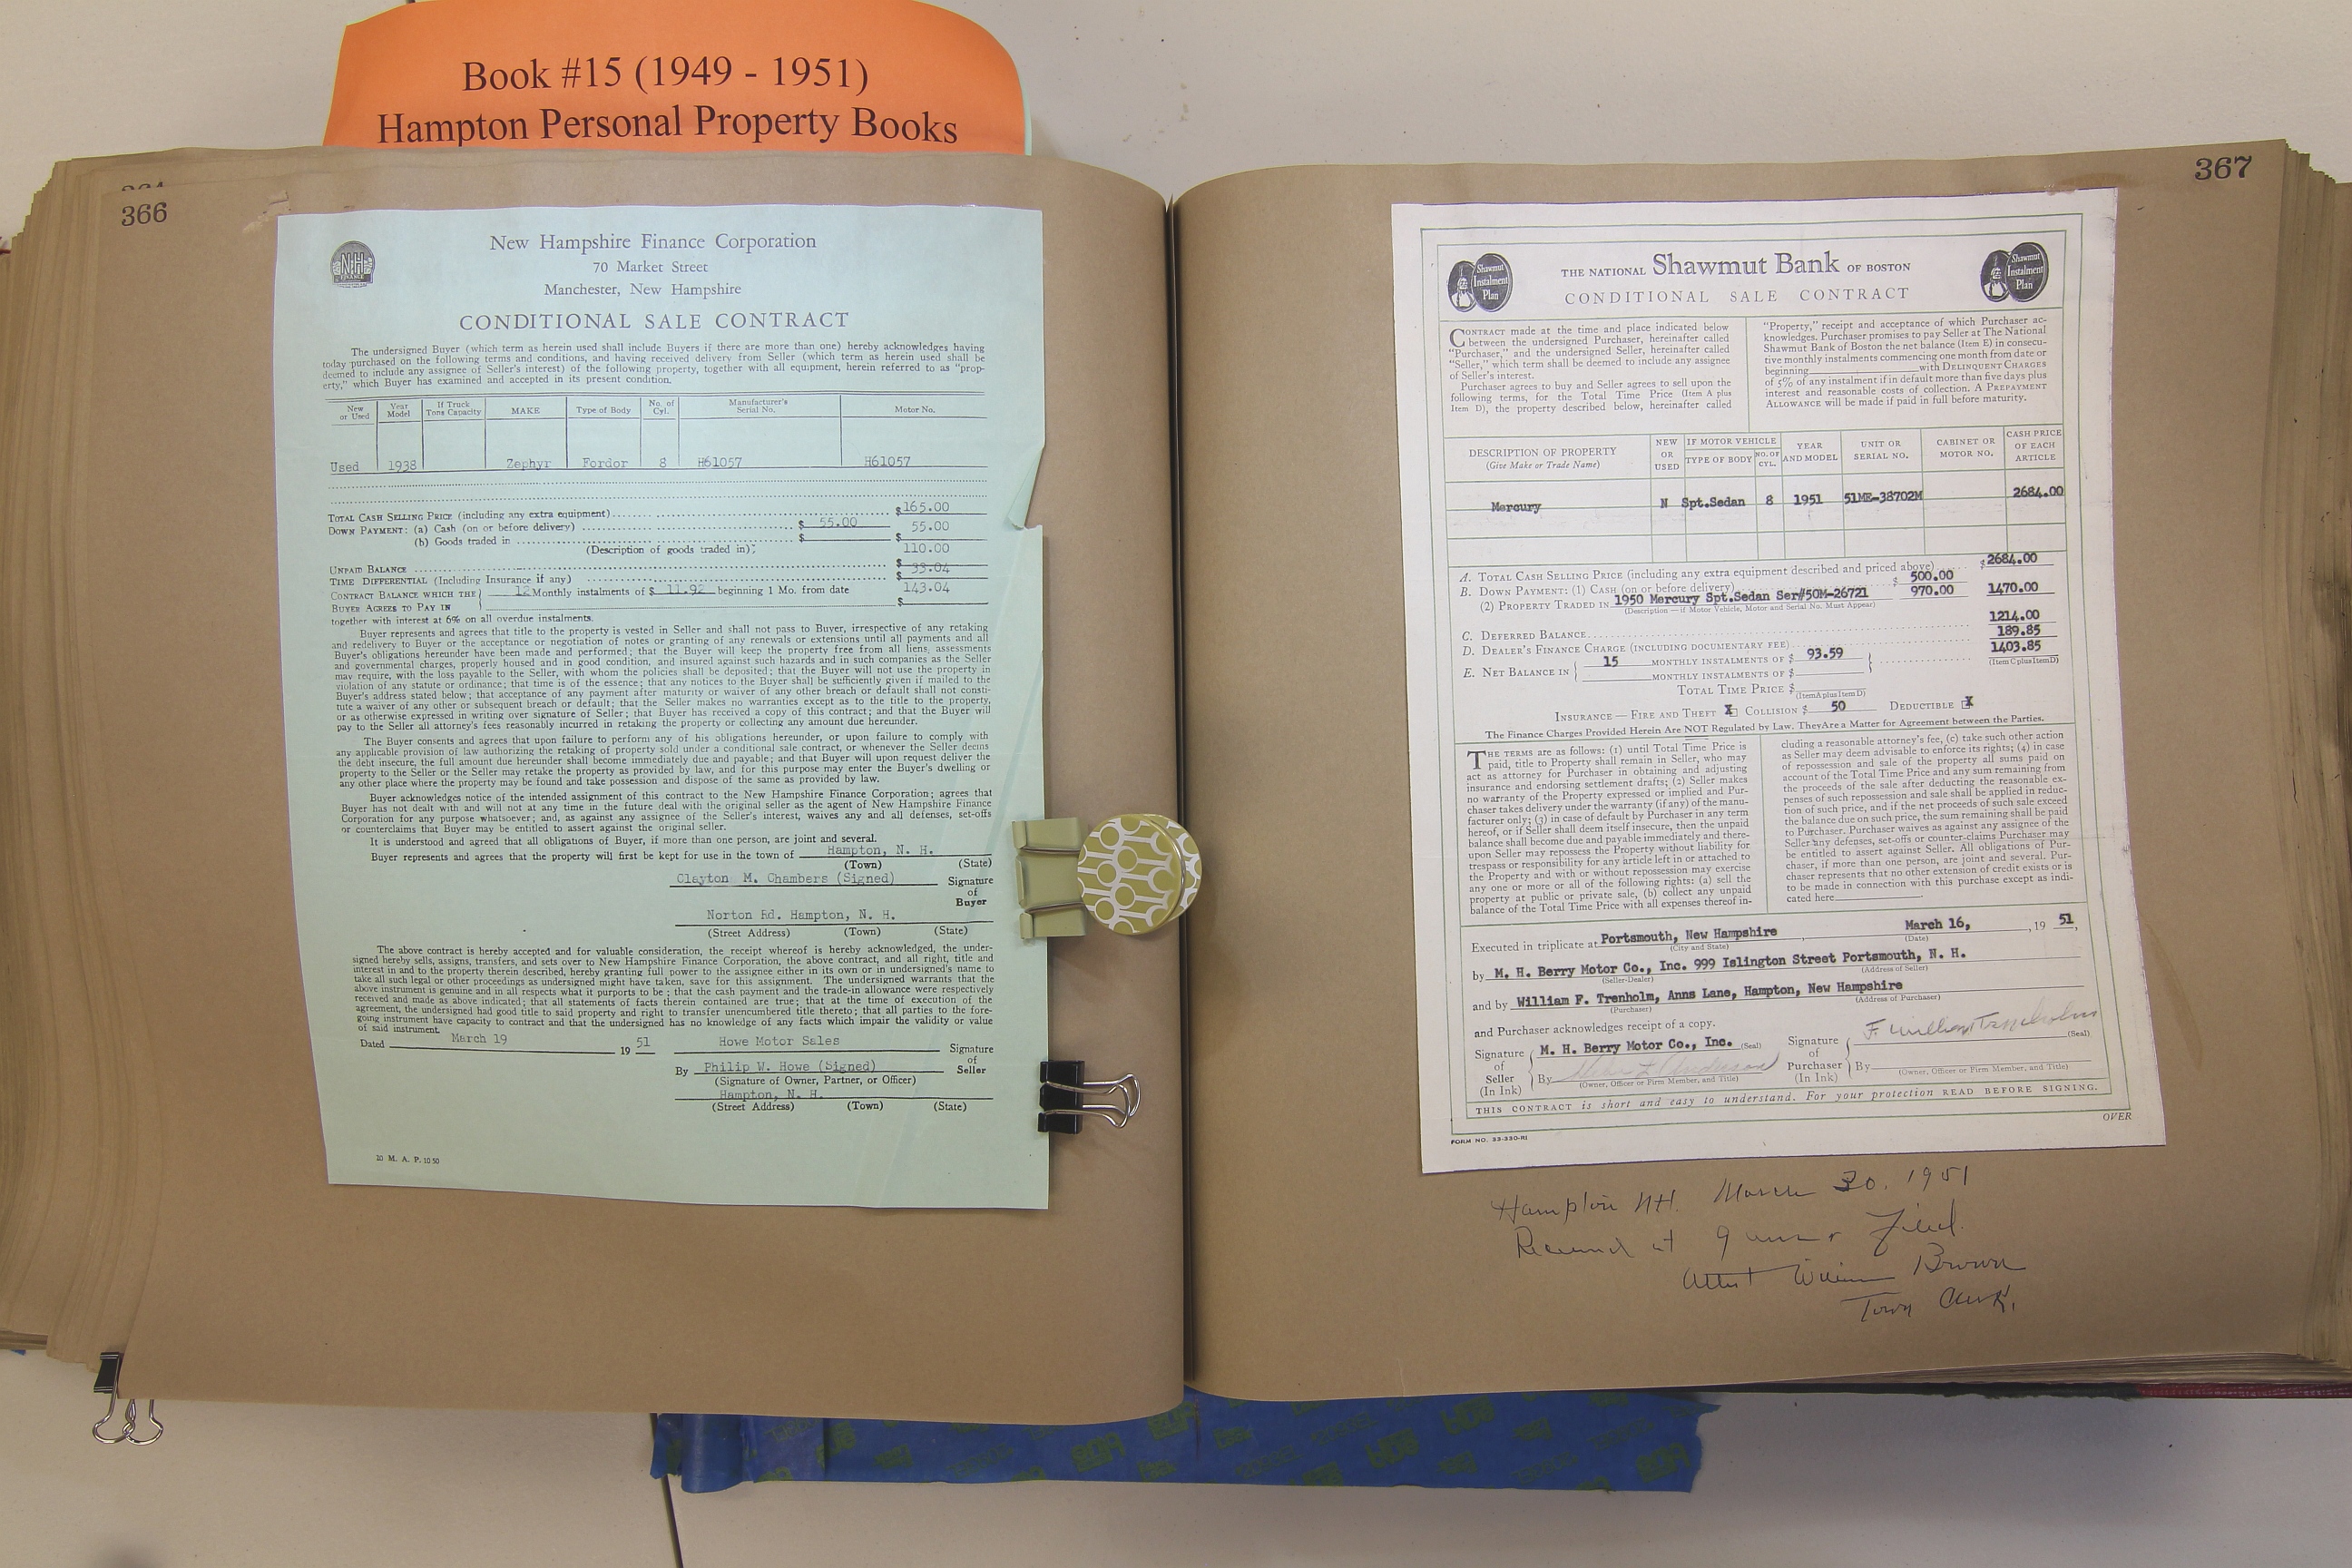 Book #15 (1949 - 1951)
Hampton Personal Property Books
366
New Hampshire Finance Corporation
70 Market Street
Manchester, New Hampshire
NH
FINANCE
CONDITIONAL SALE CONTRACT
The undersigned Buyer (which term as herein used shall include Buyers if there are more than one) hereby acknowledges having
today purchased on the following terms and conditions, and having received delivery from Seller (which term as herein used shall be
deemed to include any assignee of Seller's interest) of the following property, together with all equipment, herein referred to as "prop-
erty," which Buyer has examined and accepted in its present condition.
New or Used Year Model If Truck Tons Capacity MAKE Type of Body No. of Cyl. Manufacturer's Serial No. Motor No.
Used 1938 Zephyr Fordor 8 H61057 H61057
TOTAL CASH SELLING PRICE (including any extra equipment) $165.00
DOWN PAYMENT: (a) Cash (on or before delivery) $ 55.00 55.00
(b) Goods traded in $ $
(Description of goods traded in): 110.00
UNPAID BALANCE $ 33.04
TIME DIFFERENTIAL (Including Insurance if any) $
CONTRACT BALANCE WHICH THE BUYER AGREES TO PAY IN 12 Monthly instalments of $ 11.92 beginning 1 Mo. from date 143.04
$
together with interest at 6% on all overdue instalments.
Buyer represents and agrees that title to the property is vested in Seller and shall not pass to Buyer, irrespective of any retaking
and redelivery to Buyer or the acceptance or negotiation of notes or granting of any renewals or extensions until all payments and all
Buyer's obligations hereunder have been made and performed; that the Buyer will keep the property free from all liens, assessments
and governmental charges, properly housed and in good condition, and insured against such hazards and in such companies as the Seller
may require, with the loss payable to the Seller, with whom the policies shall be deposited; that the Buyer will not use the property in
violation of any statute or ordinance; that time is of the essence; that any notices to the Buyer shall be sufficiently given if mailed to the
Buyer's address stated below; that acceptance of any payment after maturity or waiver of any other breach or default shall not consti-
tute a waiver of any other or subsequent breach or default; that the Seller makes no warranties except as to the title to the property,
or as otherwise expressed in writing over signature of Seller; that Buyer has received a copy of this contract; and that the Buyer will
pay to the Seller all attorney's fees reasonably incurred in retaking the property or collecting any amount due hereunder.
The Buyer consents and agrees that upon failure to perform any of his obligations hereunder, or upon failure to comply with
any applicable provision of law authorizing the retaking of property sold under a conditional sale contract, or whenever the Seller deems
the debt insecure, the full amount due hereunder shall become immediately due and payable; and that Buyer will upon request deliver the
property to the Seller or the Seller may retake the property as provided by law, and for this purpose may enter the Buyer's dwelling or
any other place where the property may be found and take possession and dispose of the same as provided by law.
Buyer acknowledges notice of the intended assignment of this contract to the New Hampshire Finance Corporation; agrees that
Buyer has not dealt with and will not at any time in the future deal with the original seller as the agent of New Hampshire Finance
Corporation for any purpose whatsoever; and, as against any assignee of the Seller's interest, waives any and all defenses, set-offs
or counterclaims that Buyer may be entitled to assert against the original seller.
It is understood and agreed that all obligations of Buyer, if more than one person, are joint and several.
Buyer represents and agrees that the property will first be kept for use in the town of Hampton, N. H.
(Town) (State)
Clayton M. Chambers (Signed) Signature of Buyer
Norton Rd. Hampton, N. H.
(Street Address) (Town) (State)
The above contract is hereby accepted and for valuable consideration, the receipt whereof is hereby acknowledged, the under-
signed hereby sells, assigns, transfers, and sets over to New Hampshire Finance Corporation, the above contract, and all right, title and
interest in and to the property therein described, hereby granting full power to the assignee either in its own or in undersigned's name to
take all such legal or other proceedings as undersigned might have taken, save for this assignment. The undersigned warrants that the
above instrument is genuine and in all respects what it purports to be; that the cash payment and the trade-in allowance were respectively
received and made as above indicated; that all statements of facts therein contained are true; that at the time of execution of the
agreement, the undersigned had good title to said property and right to transfer unencumbered title thereto; that all parties to the fore-
going instrument have capacity to contract and that the undersigned has no knowledge of any facts which impair the validity or value
of said instrument.
Dated March 19 19 51 Howe Motor Sales Signature of Seller
By Philip W. Howe (Signed)
(Signature of Owner, Partner, or Officer)
Hampton, N. H.
(Street Address) (Town) (State)
20 M. A. P. 10 50
367
Shawmut Instalment Plan
THE NATIONAL Shawmut Bank OF BOSTON
CONDITIONAL SALE CONTRACT
Shawmut Instalment Plan
CONTRACT made at the time and place indicated below
between the undersigned Purchaser, hereinafter called
"Purchaser," and the undersigned Seller, hereinafter called
"Seller," which term shall be deemed to include any assignee
of Seller's interest.
Purchaser agrees to buy and Seller agrees to sell upon the
following terms, for the Total Time Price (Item A plus
Item D), the property described below, hereinafter called
"Property," receipt and acceptance of which Purchaser ac-
knowledges. Purchaser promises to pay Seller at The National
Shawmut Bank of Boston the net balance (Item E) in consecu-
tive monthly instalments commencing one month from date or
beginning with DELINQUENT CHARGES
of 5% of any instalment if in default more than five days plus
interest and reasonable costs of collection. A PREPAYMENT
ALLOWANCE will be made if paid in full before maturity.
DESCRIPTION OF PROPERTY (Give Make or Trade Name) NEW OR USED IF MOTOR VEHICLE TYPE OF BODY NO. OF CYL. YEAR AND MODEL UNIT OR SERIAL NO. CABINET OR MOTOR NO. CASH PRICE OF EACH ARTICLE
Mercury N Spt.Sedan 8 1951 51ME-38702M 2684.00
A. TOTAL CASH SELLING PRICE (including any extra equipment described and priced above) $2684.00
B. DOWN PAYMENT: (1) Cash (on or before delivery) $ 500.00
(2) PROPERTY TRADED IN 1950 Mercury Spt.Sedan Ser#50M-26721 970.00 1470.00
(Description — if Motor Vehicle, Motor and Serial No. Must Appear)
C. DEFERRED BALANCE 1214.00
D. DEALER'S FINANCE CHARGE (INCLUDING DOCUMENTARY FEE) 189.85
E. NET BALANCE IN 15 MONTHLY INSTALMENTS OF $ 93.59 1403.85
MONTHLY INSTALMENTS OF $ (Item C plus Item D)
TOTAL TIME PRICE $
(Item A plus Item D)
INSURANCE — FIRE AND THEFT X COLLISION $ 50 DEDUCTIBLE X
The Finance Charges Involved Herein Are NOT Regulated by Law. They Are a Matter for Agreement between the Parties.
THE TERMS are as follows: (1) until Total Time Price is
paid, title to Property shall remain in Seller, who may
act as attorney for Purchaser in obtaining and adjusting
insurance and endorsing settlement drafts; (2) Seller makes
no warranty of the Property expressed or implied and Pur-
chaser takes delivery under the warranty (if any) of the manu-
facturer only; (3) in case of default by Purchaser in any term
hereof, or if Seller shall deem itself insecure, then the unpaid
balance shall become due and payable immediately and there-
upon Seller may repossess the Property without liability for
trespass or responsibility for any article left in or attached to
the Property and with or without repossession may exercise
any one or more or all of the following rights: (a) sell the
property at public or private sale, (b) collect any unpaid
balance of the Total Time Price with all expenses thereof in-
cluding a reasonable attorney's fee, (c) take such other action
as Seller may deem advisable to enforce its rights; (4) in case
of repossession and sale of the property all sums paid on
account of the Total Time Price and any sum remaining from
the proceeds of the sale after deducting the reasonable ex-
penses of such repossession and sale shall be applied in reduc-
tion of such price, and if the net proceeds of such sale exceed
the balance due on such price, the sum remaining shall be paid
to Purchaser. Purchaser waives as against any assignee of the
Seller any defenses, set-offs or counter-claims Purchaser may
be entitled to assert against Seller. All obligations of Pur-
chaser, if more than one person, are joint and several. Pur-
chaser represents that no other extension of credit exists or is
to be made in connection with this purchase except as indi-
cated here
Executed in triplicate at Portsmouth, New Hampshire, March 16, , 19 51,
(City and State) (Date)
by M. H. Berry Motor Co., Inc. 999 Islington Street Portsmouth, N. H.
(Seller-Dealer) (Address of Seller)
and by William F. Trenholm, Anns Lane, Hampton, New Hampshire
(Purchaser) (Address of Purchaser)
and Purchaser acknowledges receipt of a copy.
Signature of Seller (In Ink) M. H. Berry Motor Co., Inc. (Seal)
By
(Owner, Officer or Firm Member, and Title)
Signature of Purchaser (In Ink) F. William Trenholm (Seal)
By
(Owner, Officer or Firm Member, and Title)
THIS CONTRACT is short and easy to understand. For your protection READ BEFORE SIGNING.
OVER
FORM NO. 33-330-RI
Hampton NH. March 30. 1951
Received at 9 Filed.
Attest William Brown
Town Clerk.